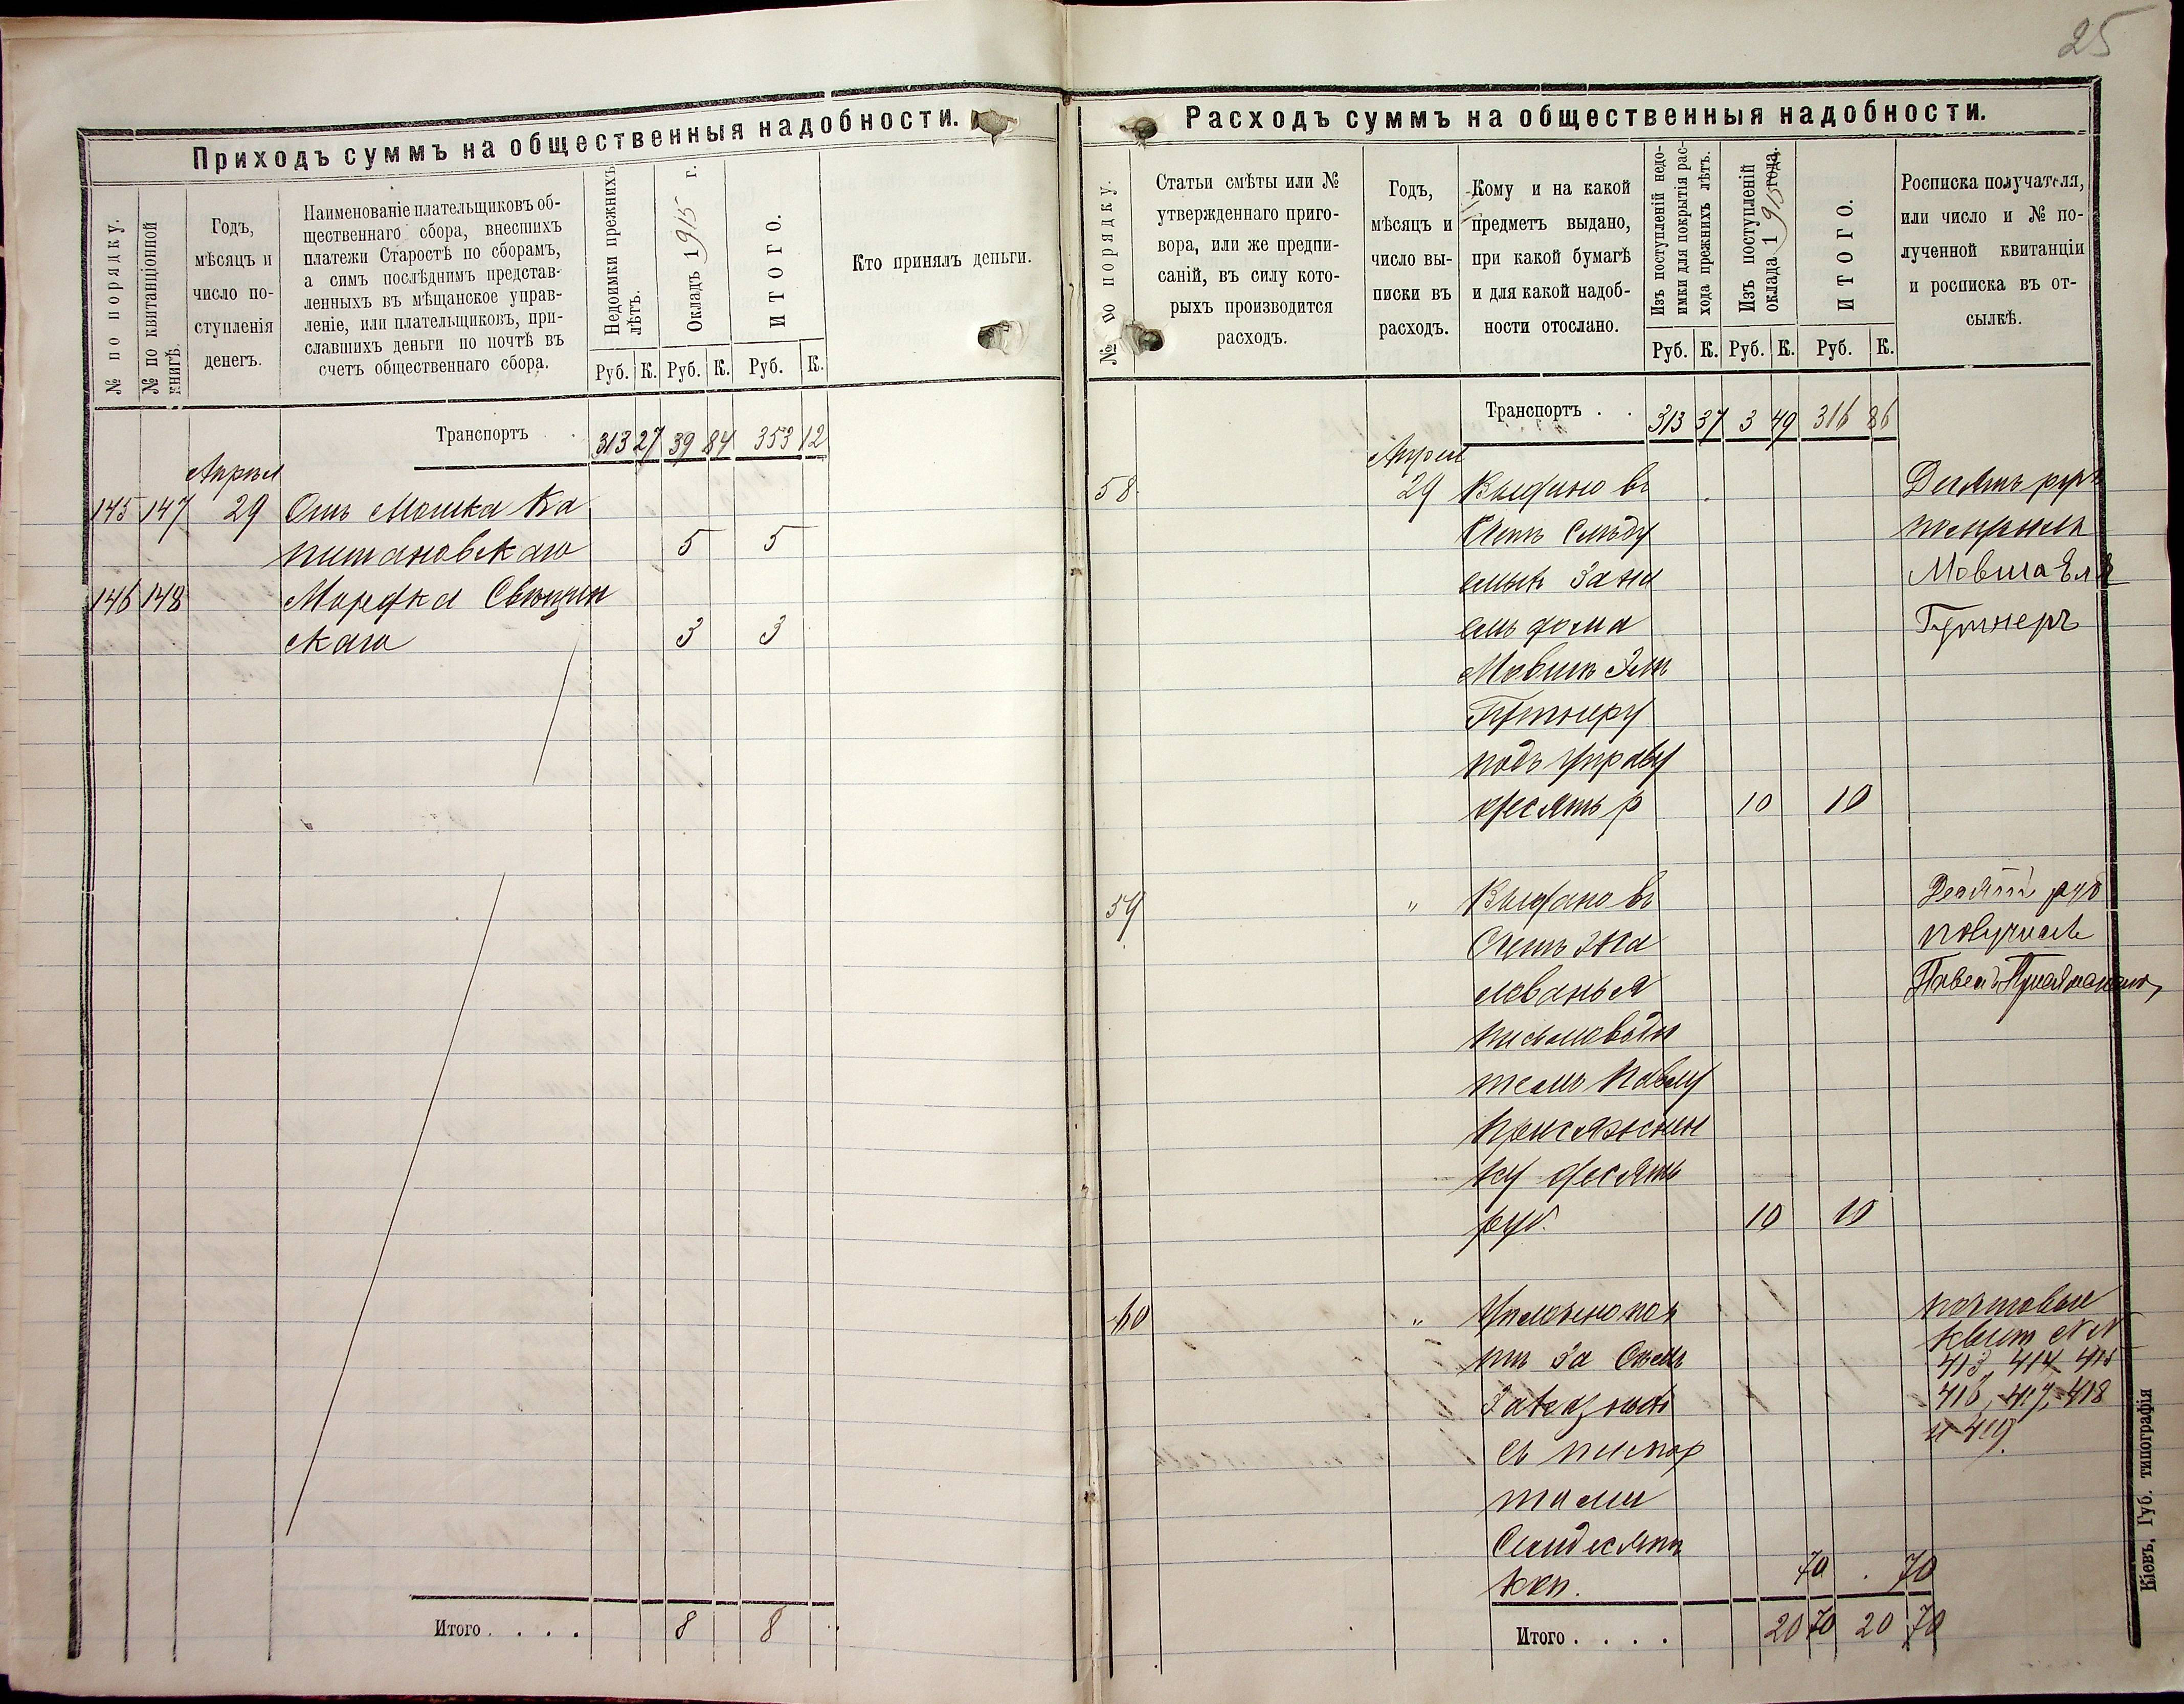 25
Приходъ суммъ на общественныя надобности.
№ по порядку.
№ по квитанціонной
книгѣ.
Годъ,
мѣсяцъ и
число по-
ступленія
денегъ.
Наименованіе плательщиковъ об-
щественнаго сбора, внесшихъ
платежи Старостѣ по сборамъ,
а симъ послѣднимъ представ-
ленныхъ въ мѣщанское управ-
леніе, или плательщиковъ, при-
славшихъ деньги по почтѣ въ
счетъ общественнаго сбора.
Недоимки прежнихъ
лѣтъ.
Окладъ 1915 г.
ИТОГО.
Кто принялъ деньги.
Руб. К. Руб. К. Руб. К.
Транспортъ 313 27 39 84 353 12
145 147 29 Отъ Мошка Ка
питановскаго 5 5
146 148
скаго 3 3
Итого . . . . 8 8
Расходъ суммъ на общественныя надобности.
№ по порядку.
Статьи смѣты или №
утвержденнаго приго-
вора, или же предпи-
саній, въ силу кото-
рыхъ производится
расходъ.
Годъ,
мѣсяцъ и
число вы-
писки въ
расходъ.
Кому и на какой
предметъ выдано,
при какой бумагѣ
и для какой надоб-
ности отослано.
Изъ поступленій недо-
имки для покрытія рас-
хода прежнихъ лѣтъ.
Изъ поступленій
оклада 1915 года.
ИТОГО.
Росписка получателя,
или число и № по-
лученной квитанціи
и росписка въ от-
сылкѣ.
Руб. К. Руб. К. Руб. К.
Транспортъ . . 313 37 3 49 316 86
58 29 Выдано въ
счетъ слѣду
емыхъ за на
емъ дома
Мовшѣ
под управу
десять р 10 10
Десять руб
Мовша
59 " Выдано въ
счетъ жа
лованья
письмоводи
телю Павлу
Присяжнен
ку десять
руб. 10 10
Десять руб
получилъ
Павелъ
60 " Уплочено поч
тѣ за
заказныхъ
съ паспор
тами
Семдесять
коп. 70 70
почтовые
квит №№
413, 414, 415
416, 417, 418
и 419.
Итого . . . . 20 70 20 70
Кіевъ, Губ. типографія